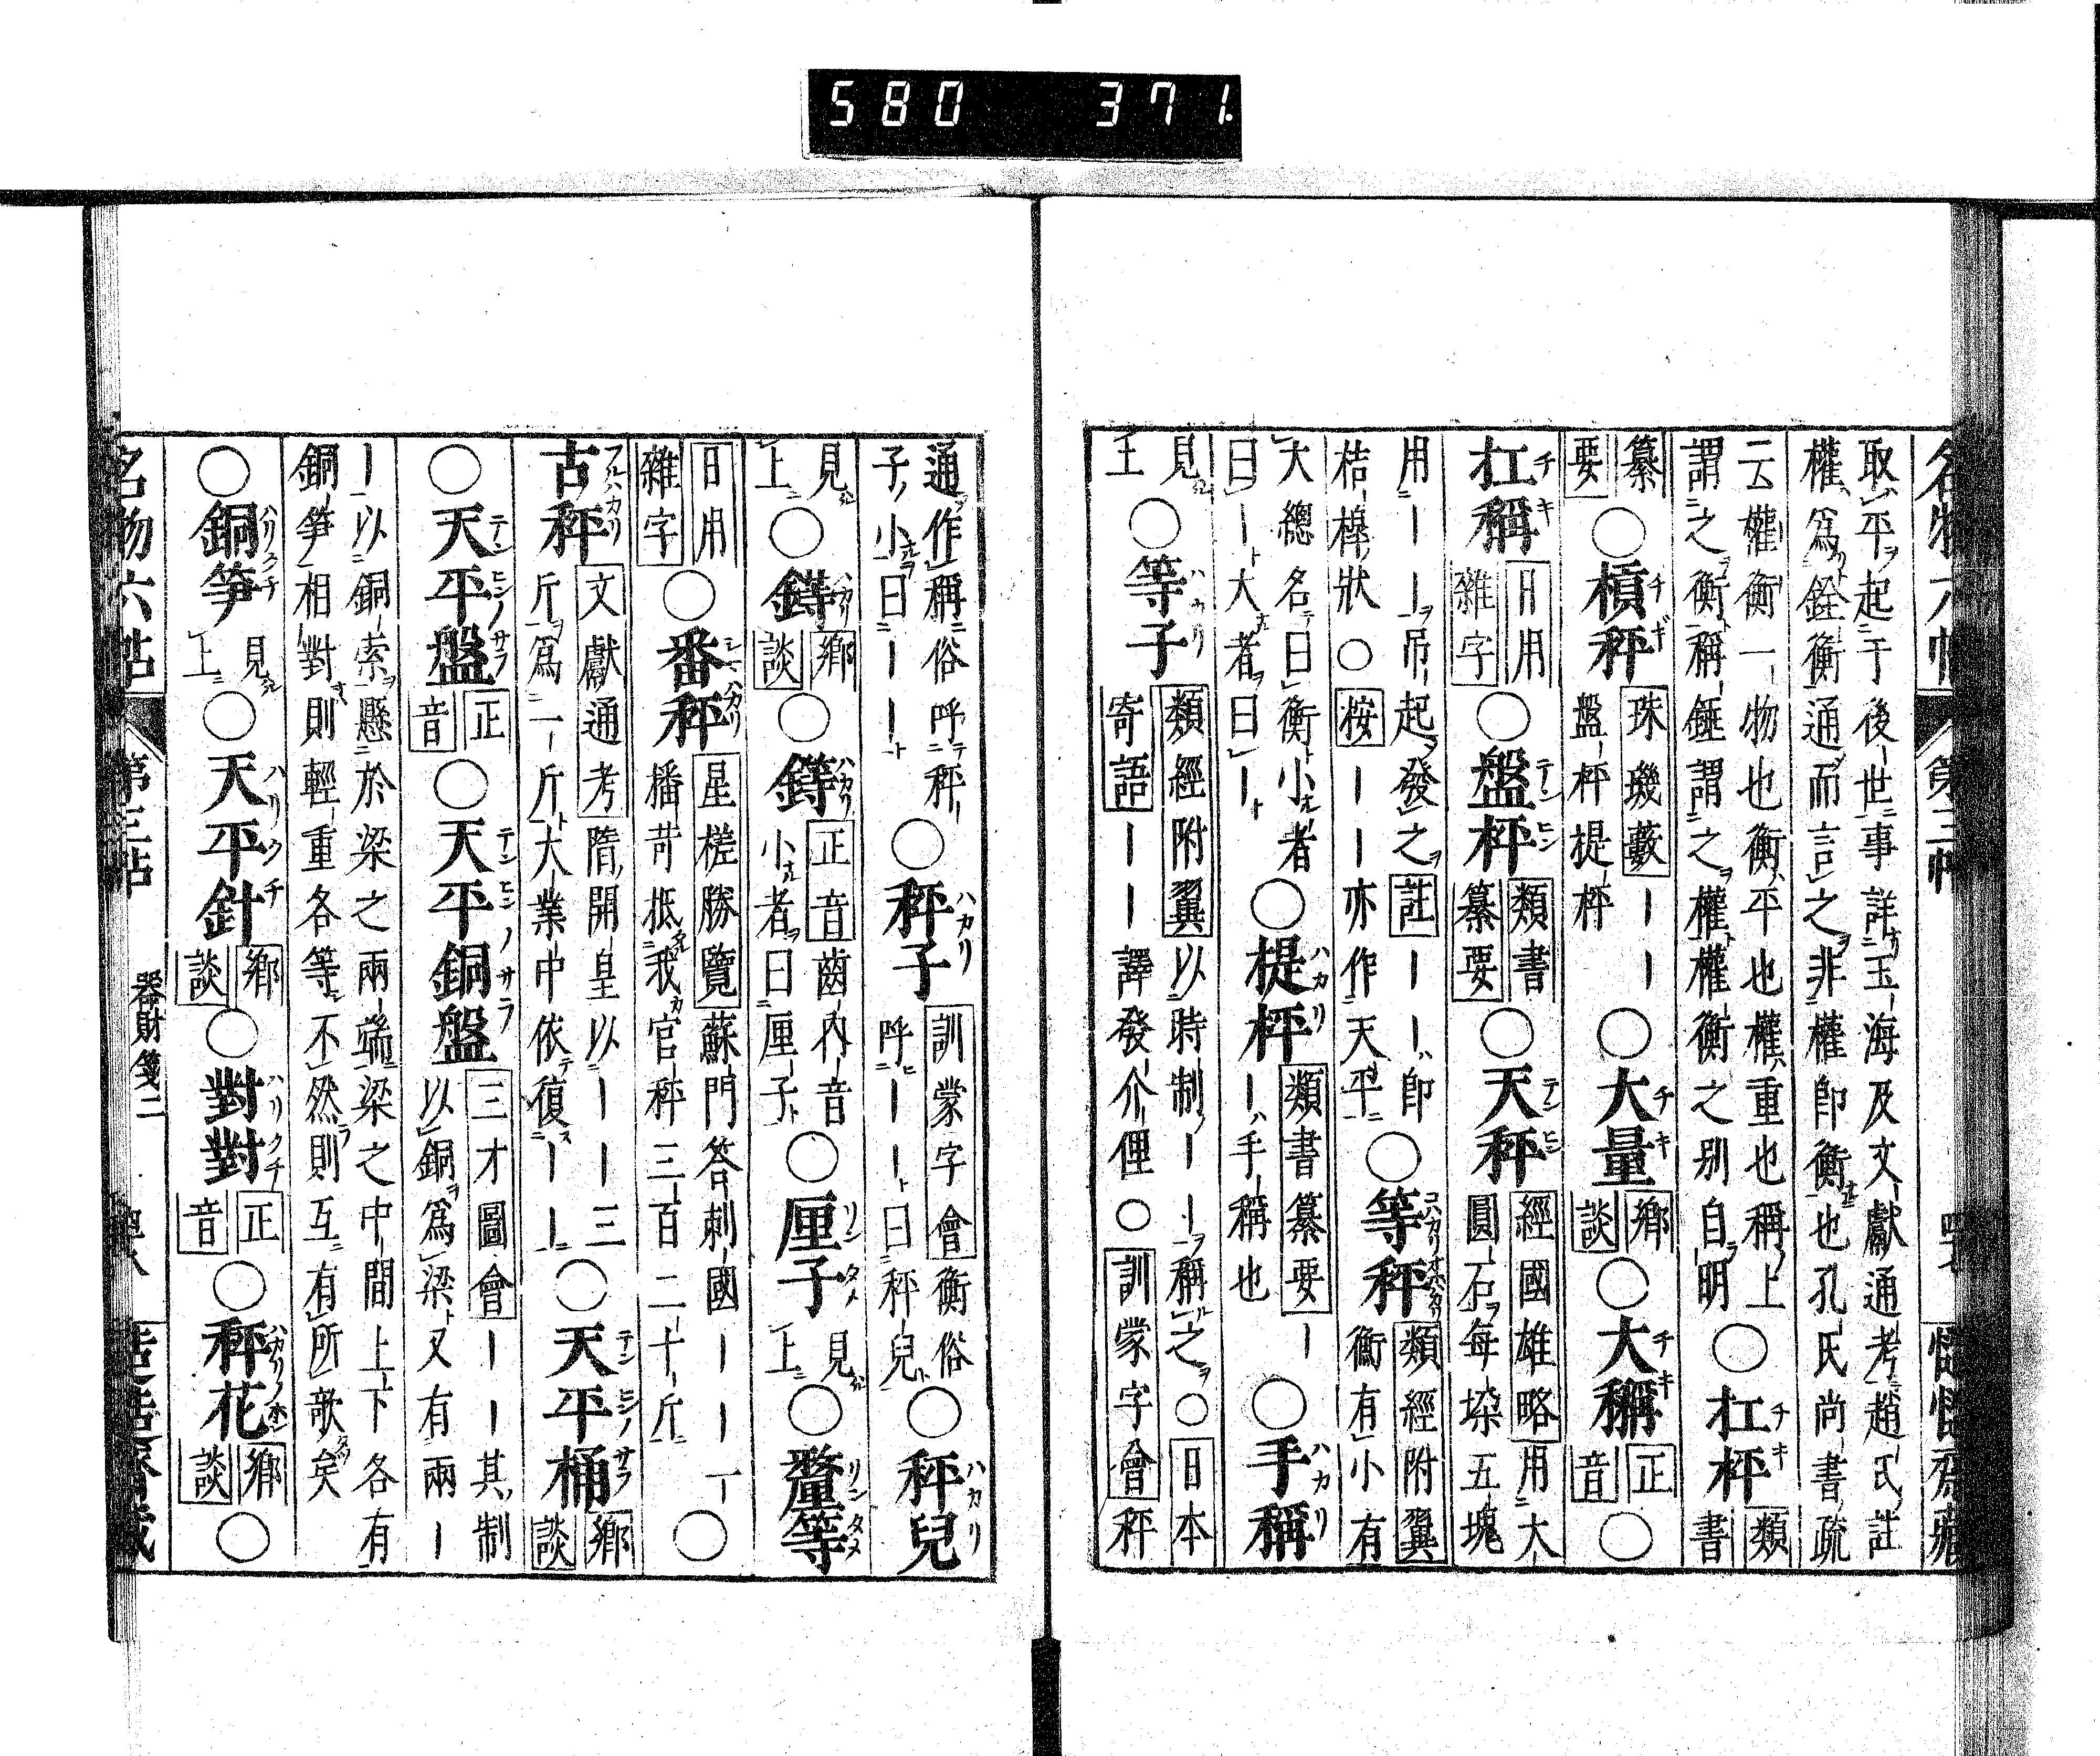 580 371
名物六帖 第三帖 慥慥齋藏
取平起于後世事詳玉海及文獻通考趙氏註
權爲銓衡通而言之非權即衡也孔氏尚書疏
云權衡一物也衡平也權重也稱上
謂之衡稱錘謂之權權衡之別自明○杠秤類書
纂要○槓秤珠璣藪ーー盤秤提秤○大量鄉談○大稱正音○
杠稱日用雜字○盤秤類書纂要○天秤經國雄略用大圓石每垜五塊
用ーー吊起發之註ーー即桔槹狀○按ーー亦作天平○等秤類經附翼衡有小有
大總名曰衡小者曰ー大者曰ー○提秤類書纂要ーー手稱也○手稱
見上○等子類經附翼以時制ーー稱之○日本寄語ーー譯發介俚○訓蒙字會秤
通作稱俗呼秤子小曰ーー○秤子訓蒙字會衡俗呼ーー曰秤兒○秤兒
見上○鐣鄉談○鐏正音齒內音小者曰厘子○厘子見上○釐等
日用雜字○番秤星槎勝覽蘇門答剌國ーー一播苛抵我官秤三百二十斤○
古秤文獻通考隋開皇以ーー三斤爲一斤大業中依復ーー○天平桶鄉談
○天平盤正音○天平銅盤三才圖會ーー其制以銅爲梁又有兩ー
ー以銅索懸於梁之兩端梁之中間上下各有
銅笋相對則輕重各等不然則互有所欹矣
○銅笋見上○天平針鄉談○對對正音○秤花鄉談○
名物六帖 第三帖 器財箋二